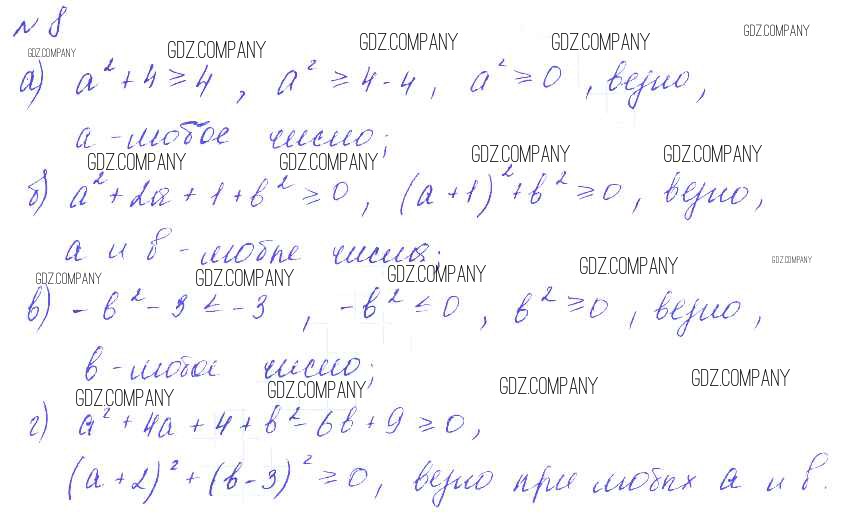 № 8
GDZ.COMPANY GDZ.COMPANY GDZ.COMPANY GDZ.COMPANY GDZ.COMPANY
а) a² + 4 ≥ 4, a² ≥ 4 - 4, a² ≥ 0, верно,
a - любое число;
GDZ.COMPANY GDZ.COMPANY GDZ.COMPANY GDZ.COMPANY
б) a² + 2a + 1 + b² ≥ 0, (a + 1)² + b² ≥ 0, верно,
a и b - любые числа;
GDZ.COMPANY GDZ.COMPANY GDZ.COMPANY GDZ.COMPANY GDZ.COMPANY
в) - b² - 3 ≤ -3, -b² ≤ 0, b² ≥ 0, верно,
b - любое число;
GDZ.COMPANY GDZ.COMPANY GDZ.COMPANY GDZ.COMPANY
г) a² + 4a + 4 + b² - 6b + 9 ≥ 0,
(a + 2)² + (b - 3)² ≥ 0, верно при любых a и b.